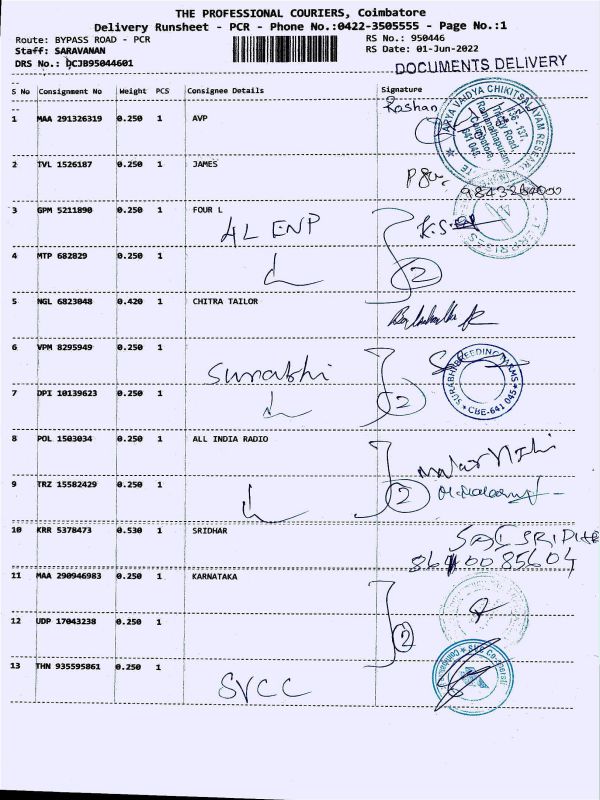 THE PROFESSIONAL COURIERS, Coimbatore
Delivery Runsheet - PCR - Phone No.:0422-3505555 - Page No.:1
Route: BYPASS ROAD - PCR
RS No.: 950446
Staff: SARAVANAN
RS Date: 01-Jun-2022
DRS No.: DCJB95044601
DOCUMENTS DELIVERY
S No Consignment No Weight PCS Consignee Details Signature
1 MAA 291326319 0.250 1 AVP Roshan
ARYA VAIDYA CHIKITSALAYAM RESEARCH
136 - 137,
Trichy Road,
Ramanathapuram
Coimbatore,
641 045
2 TVL 1526187 0.250 1 JAMES
3 GPM 5211890 0.250 1 FOUR L
4L ENP
4 MTP 682829 0.250 1 2
5 NGL 6823048 0.420 1 CHITRA TAILOR
6 VPM 8295949 0.250 1
Surabhi
SURABHI BREEDING FARMS
* CBE-641 045 *
7 DPI 10139623 0.250 1 2
8 POL 1503034 0.250 1 ALL INDIA RADIO
9 TRZ 15582429 0.250 1 2
10 KRR 5378473 0.530 1 SRIDHAR
11 MAA 290946983 0.250 1 KARNATAKA
12 UDP 17043238 0.250 1 2
13 THN 935595861 0.250 1
SVCC